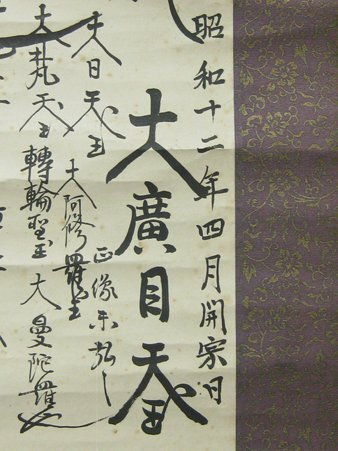 昭和十二年四月開宗日
大廣目天王
大日天王
正像未弘之
大阿修羅王
大梵天王
轉輪聖王
大曼陀羅也